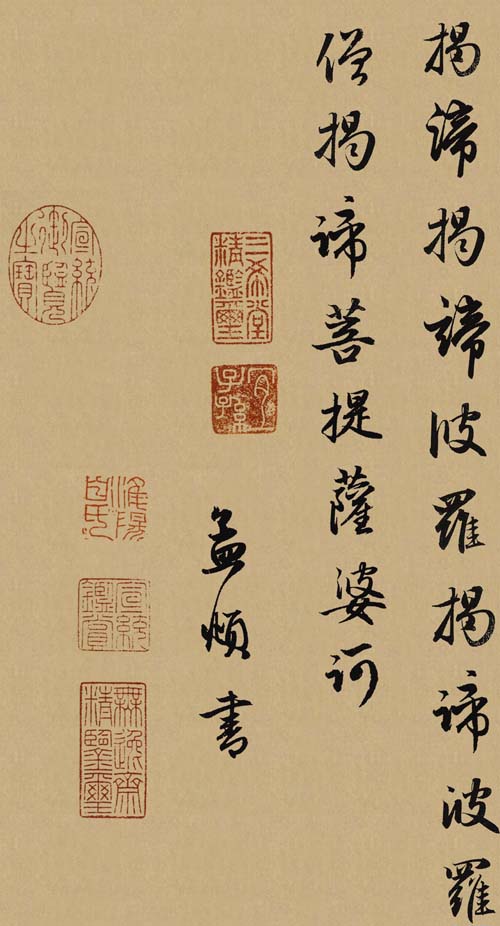 揭諦揭諦波羅揭諦波羅
僧揭諦菩提薩婆訶
孟頫書
三希堂
精鑑璽
宜
子孫
宣統
御覽
之寶
宣統
鑑賞
無逸齋
精鑒璽